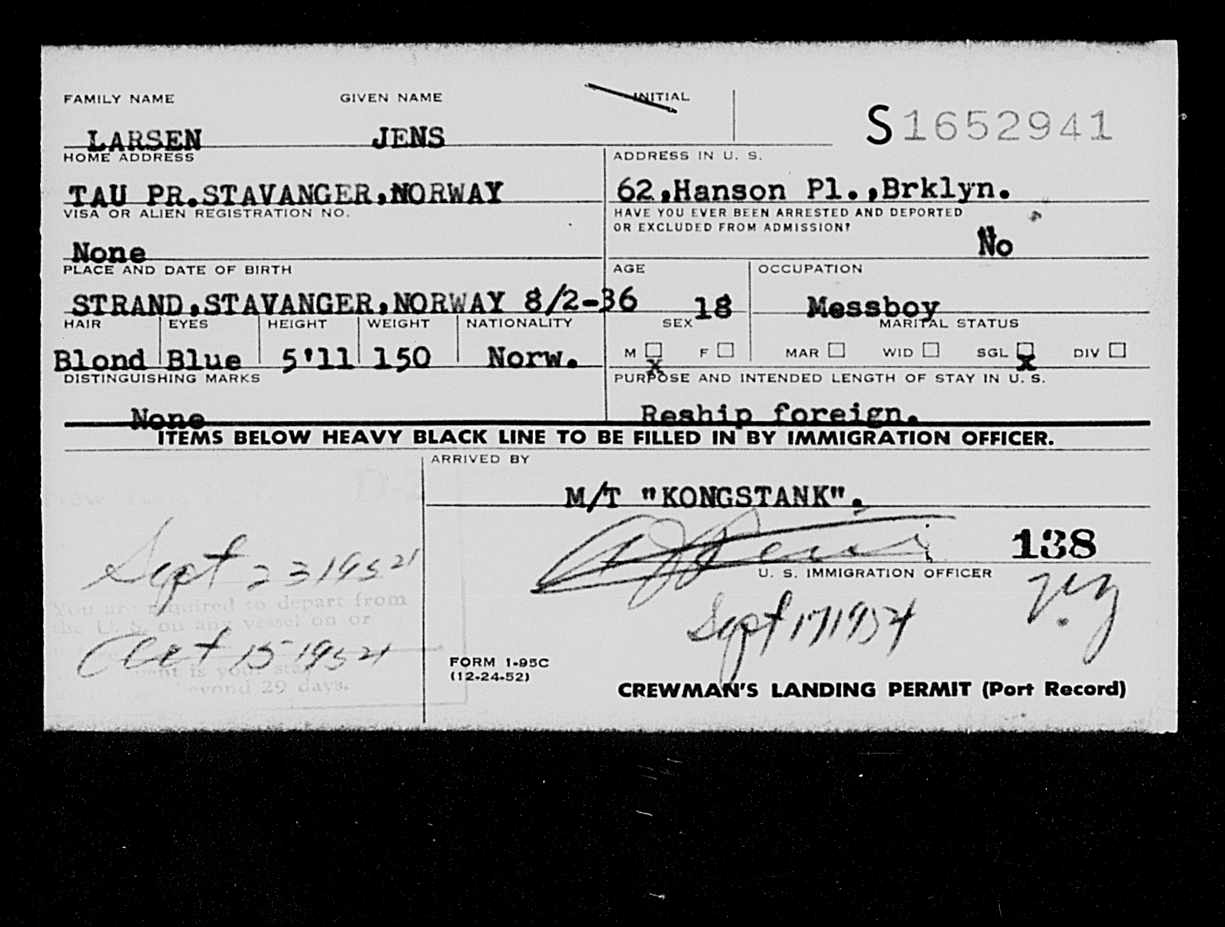 FAMILY NAME GIVEN NAME INITIAL
S1652941
LARSEN JENS
HOME ADDRESS ADDRESS IN U. S.
TAU PR.STAVANGER,NORWAY 62,Hanson Pl.,Brklyn.
VISA OR ALIEN REGISTRATION NO. HAVE YOU EVER BEEN ARRESTED AND DEPORTED
OR EXCLUDED FROM ADMISSION?
None No
PLACE AND DATE OF BIRTH AGE OCCUPATION
STRAND,STAVANGER,NORWAY 8/2-36 18 Messboy
HAIR EYES HEIGHT WEIGHT NATIONALITY SEX MARITAL STATUS
Blond Blue 5'11 150 Norw. M x F MAR WID SGL x DIV
DISTINGUISHING MARKS PURPOSE AND INTENDED LENGTH OF STAY IN U. S.
None Reship foreign.
ITEMS BELOW HEAVY BLACK LINE TO BE FILLED IN BY IMMIGRATION OFFICER.
ARRIVED BY
M/T "KONGSTANK".
138
U. S. IMMIGRATION OFFICER
Sept 23 1954
You are required to depart from
the U. S. on any vessel on or
Sept 17 1954
Oct 15 1954
is your
beyond 29 days.
FORM 1-95C
(12-24-52)
CREWMAN'S LANDING PERMIT (Port Record)